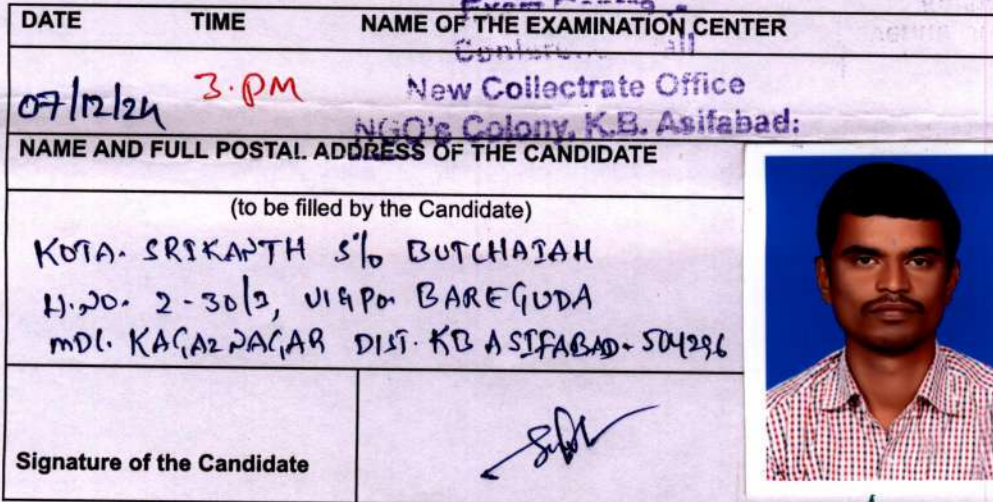 DATE TIME NAME OF THE EXAMINATION CENTER
07/12/24 3.PM New Collectrate Office
NGO's Colony, K.B. Asifabad:
NAME AND FULL POSTAL ADDRESS OF THE CANDIDATE
(to be filled by the Candidate)
KOTA. SRIKANTH S/o BUTCHAIAH
H.NO. 2-30/3, Vi&Po: BAREGUDA
MDL. KAGAZNAGAR DIST. KB ASIFABAD-504296
Signature of the Candidate